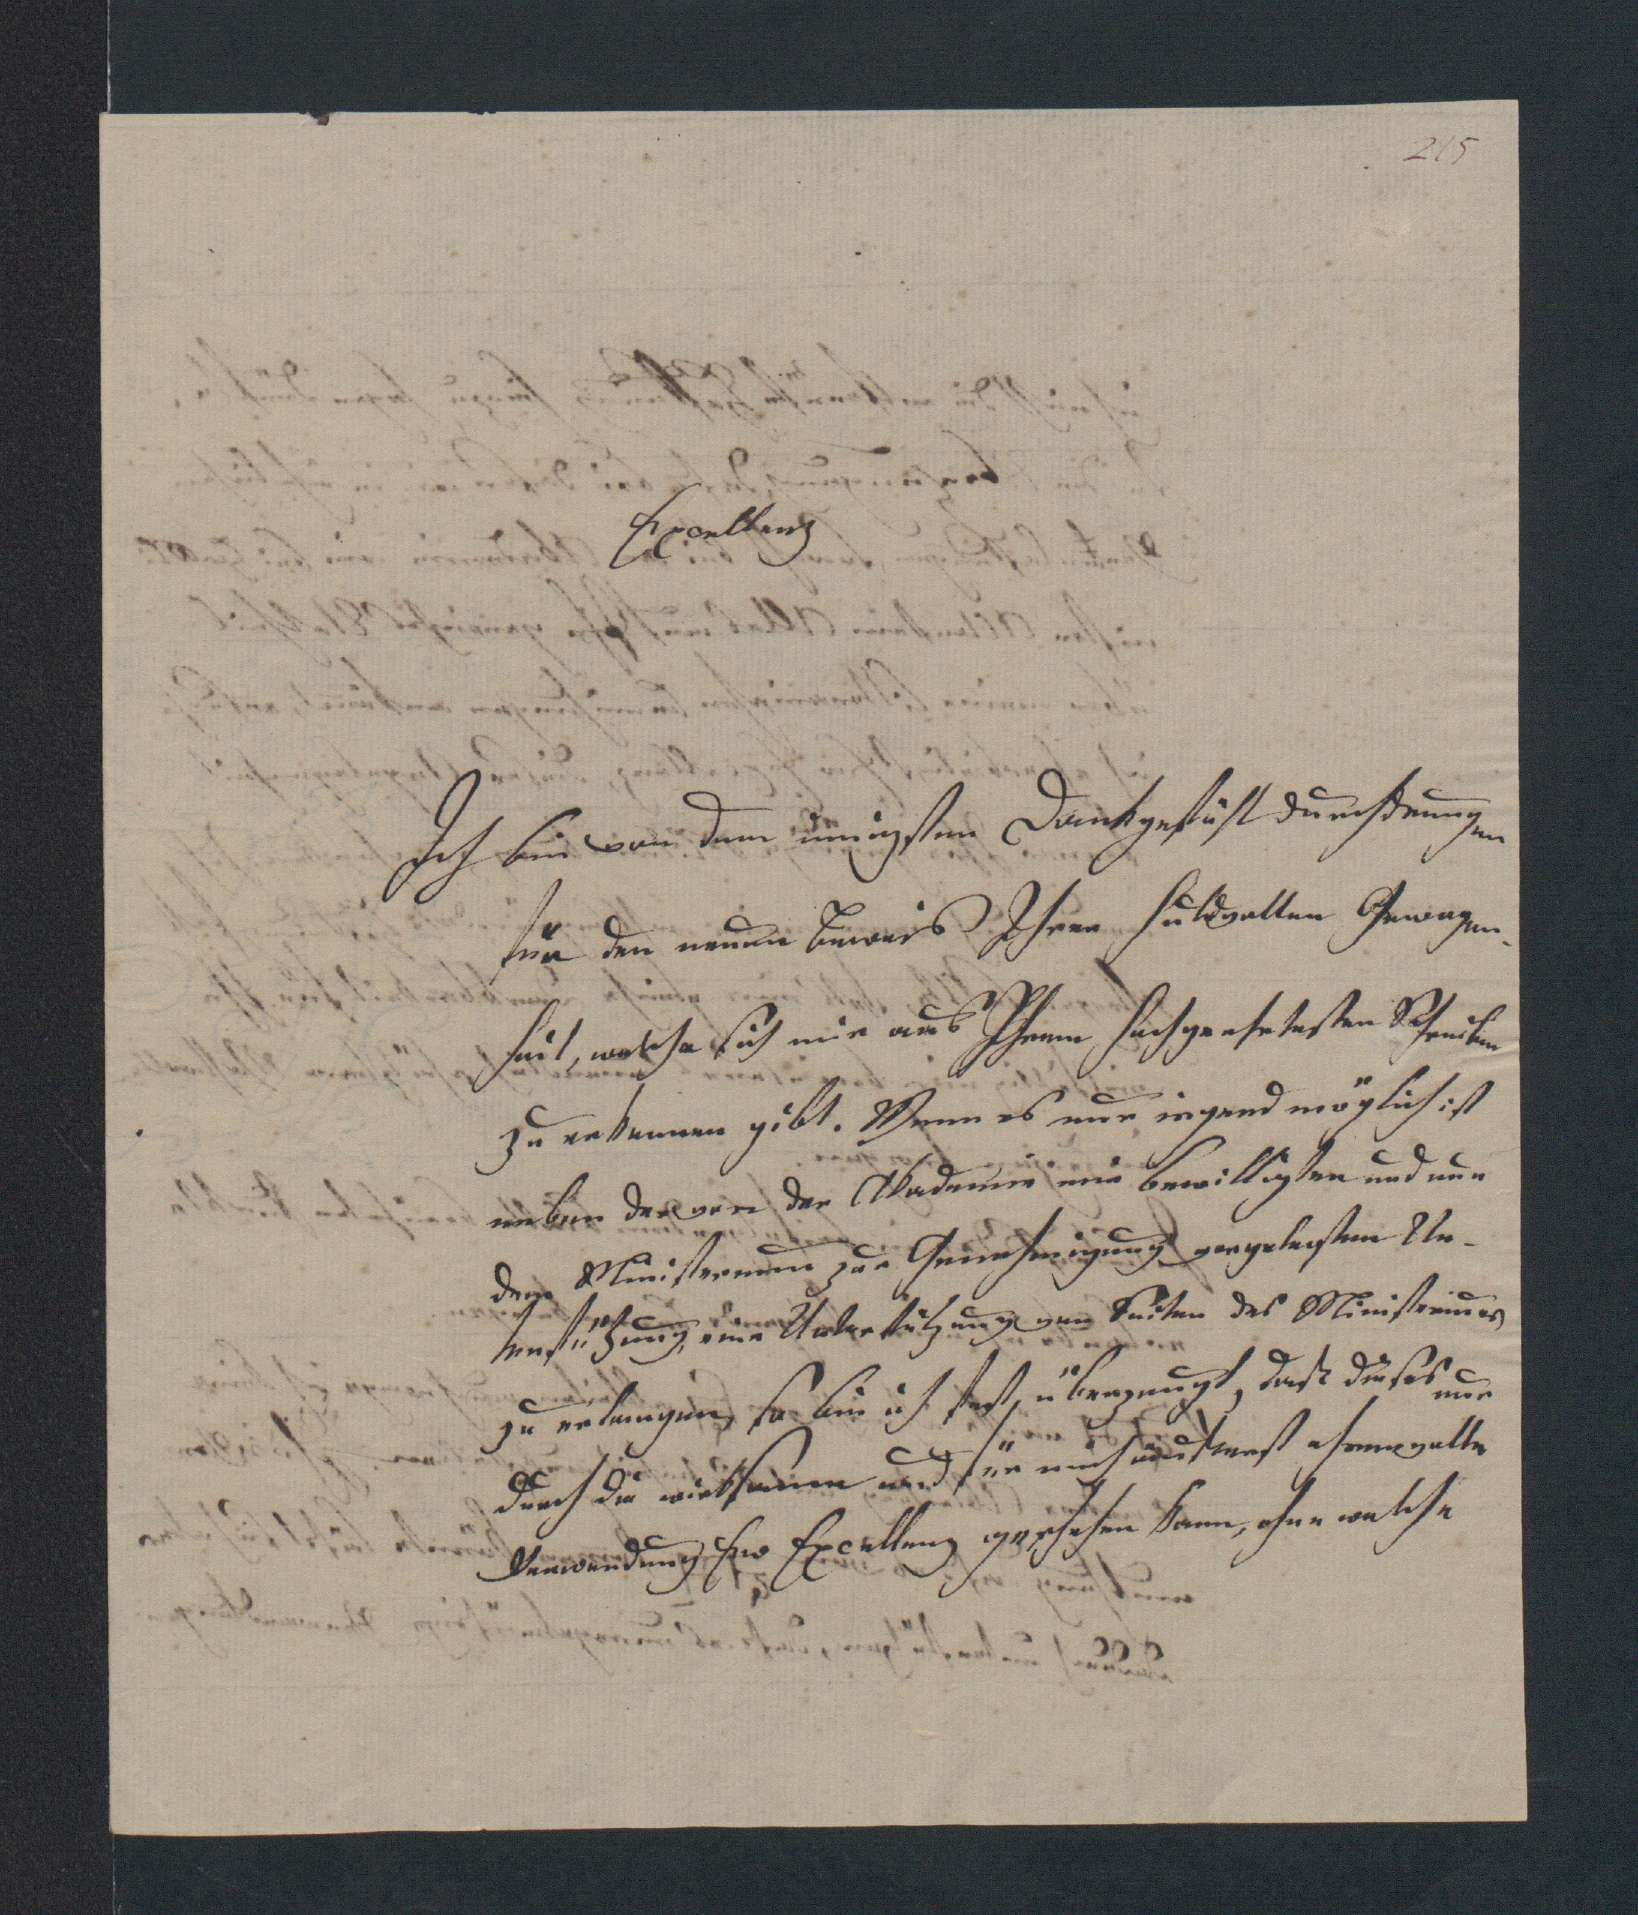 215
Excellenz
Ich bin von dem innigsten Dankgefühl durchdrungen
für den neuen Beweis Ihrer huldvollen Gewogen-
heit, welche sich mir aus Ihrem hochgeehrtesten Schreiben
zu erkennen gibt. Wenn es nur irgend möglich ist
neben der von der Akademie mir bewilligten und nun
dem Ministerium zur Genehmigung vorgelegten Un-
terstützung, eine Unterstützung von Seiten des Ministeriums
zu erlangen, so bin ich fest überzeugt, daß dieses nur
durch die wirksame und für mich äußerst ehrenvolle
Verwendung Ew Excellenz geschehen kann, ohne welche